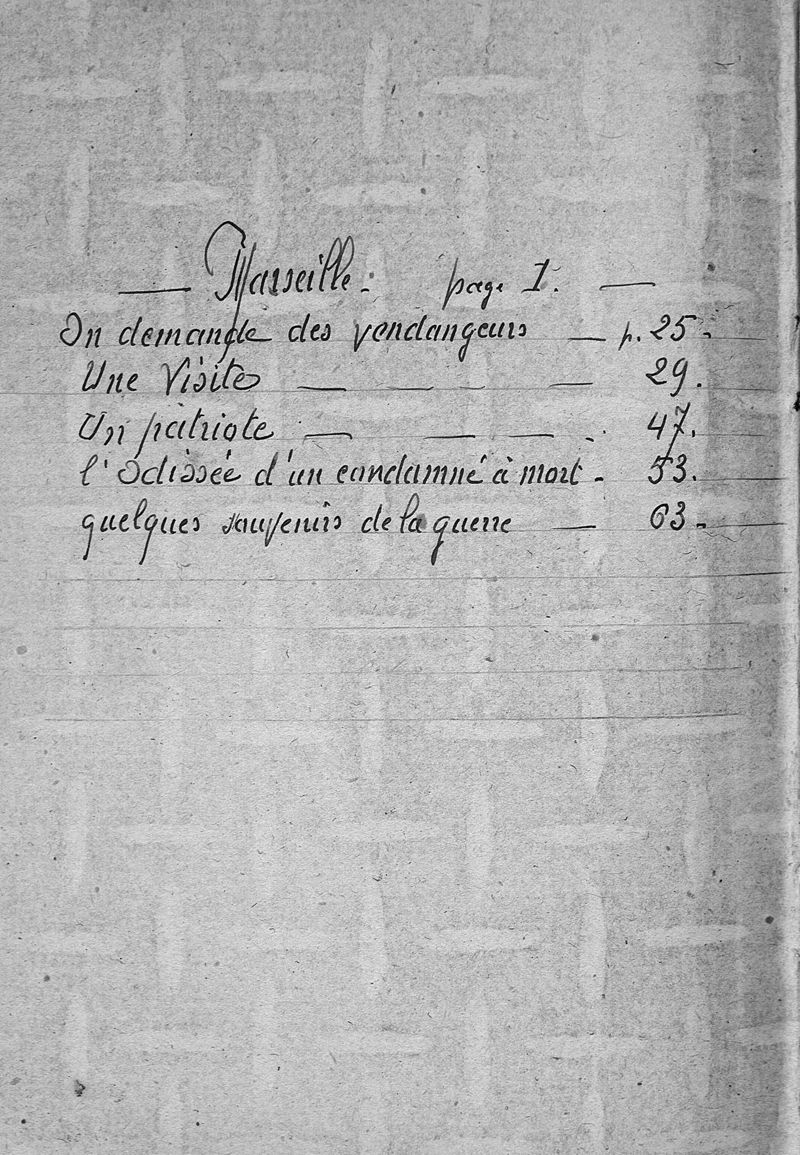 — Marseille. page 1. —
On demande des vendangeurs — p. 25.
Une Visite — — — — 29.
Un patriote — — — . 47.
l'Odissée d'un condamné à mort - 53.
quelques souvenirs de la guerre — 63.